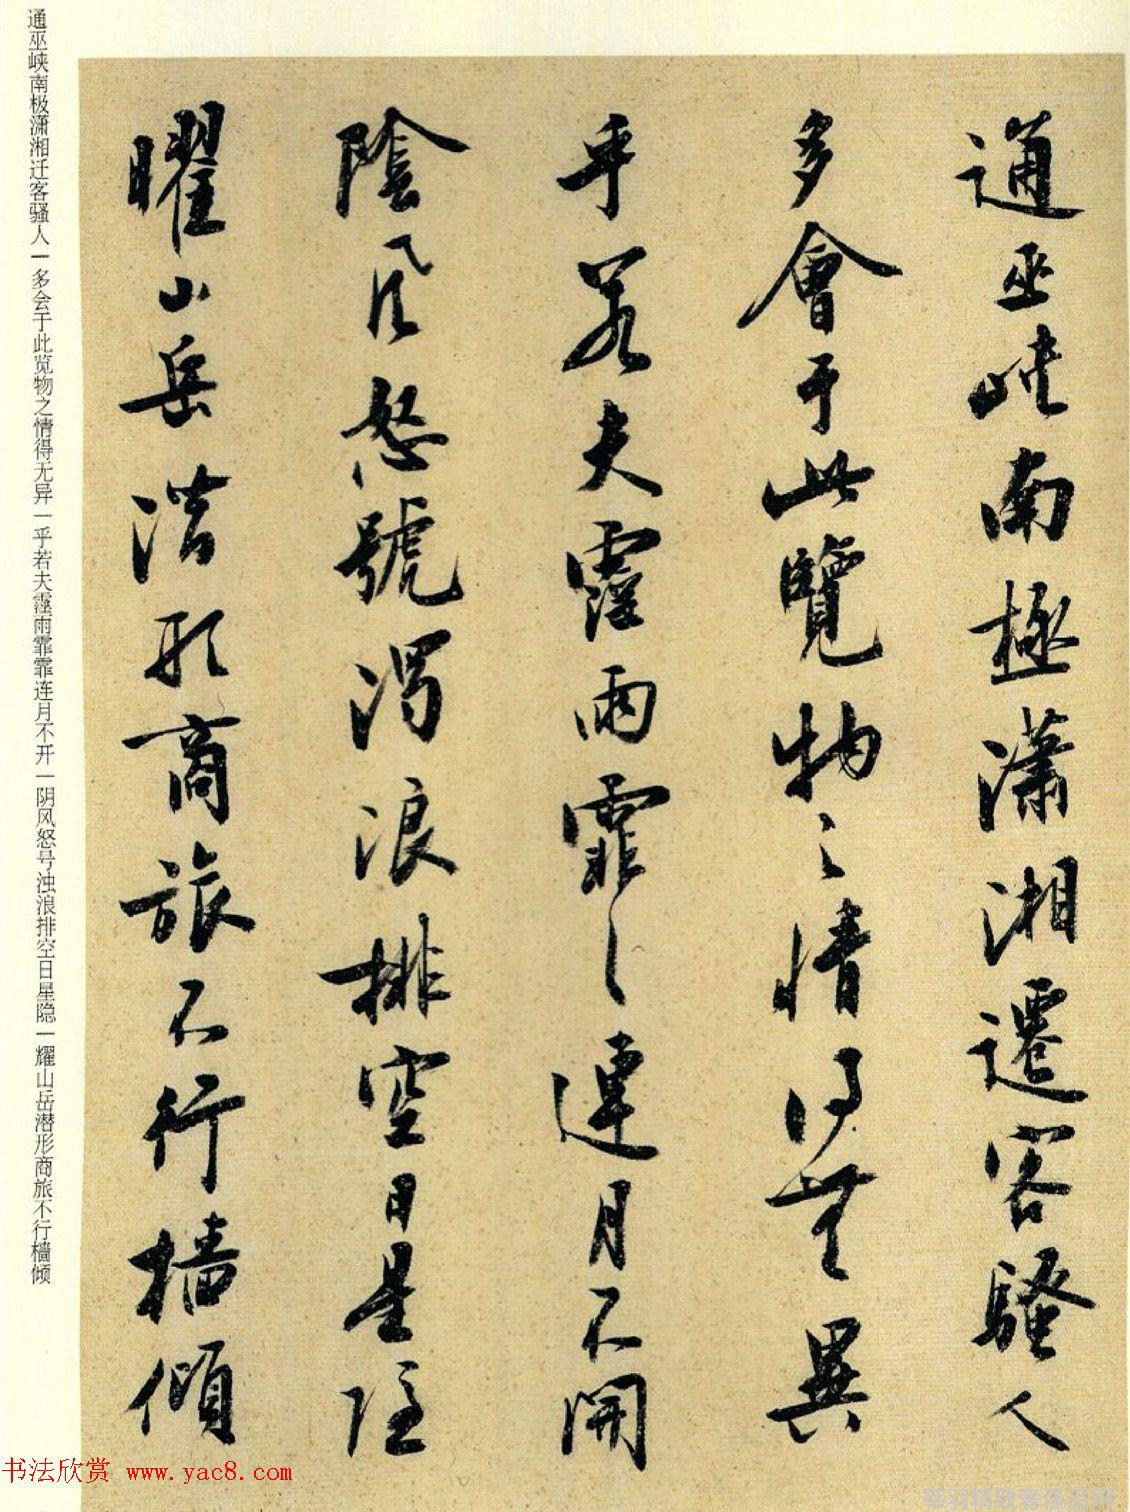 通巫峽南極瀟湘遷客騷人
多會于此覽物之情得無異
乎若夫霪雨霏〻連月不開
陰風怒號濁浪排空日星隱
曜山岳潛形商旅不行檣傾
通巫峡南极潇湘迁客骚人|多会于此览物之情得无异|乎若夫霪雨霏霏连月不开|阴风怒号浊浪排空日星隐|耀山岳潜形商旅不行樯倾
书法欣赏 www.yac8.com